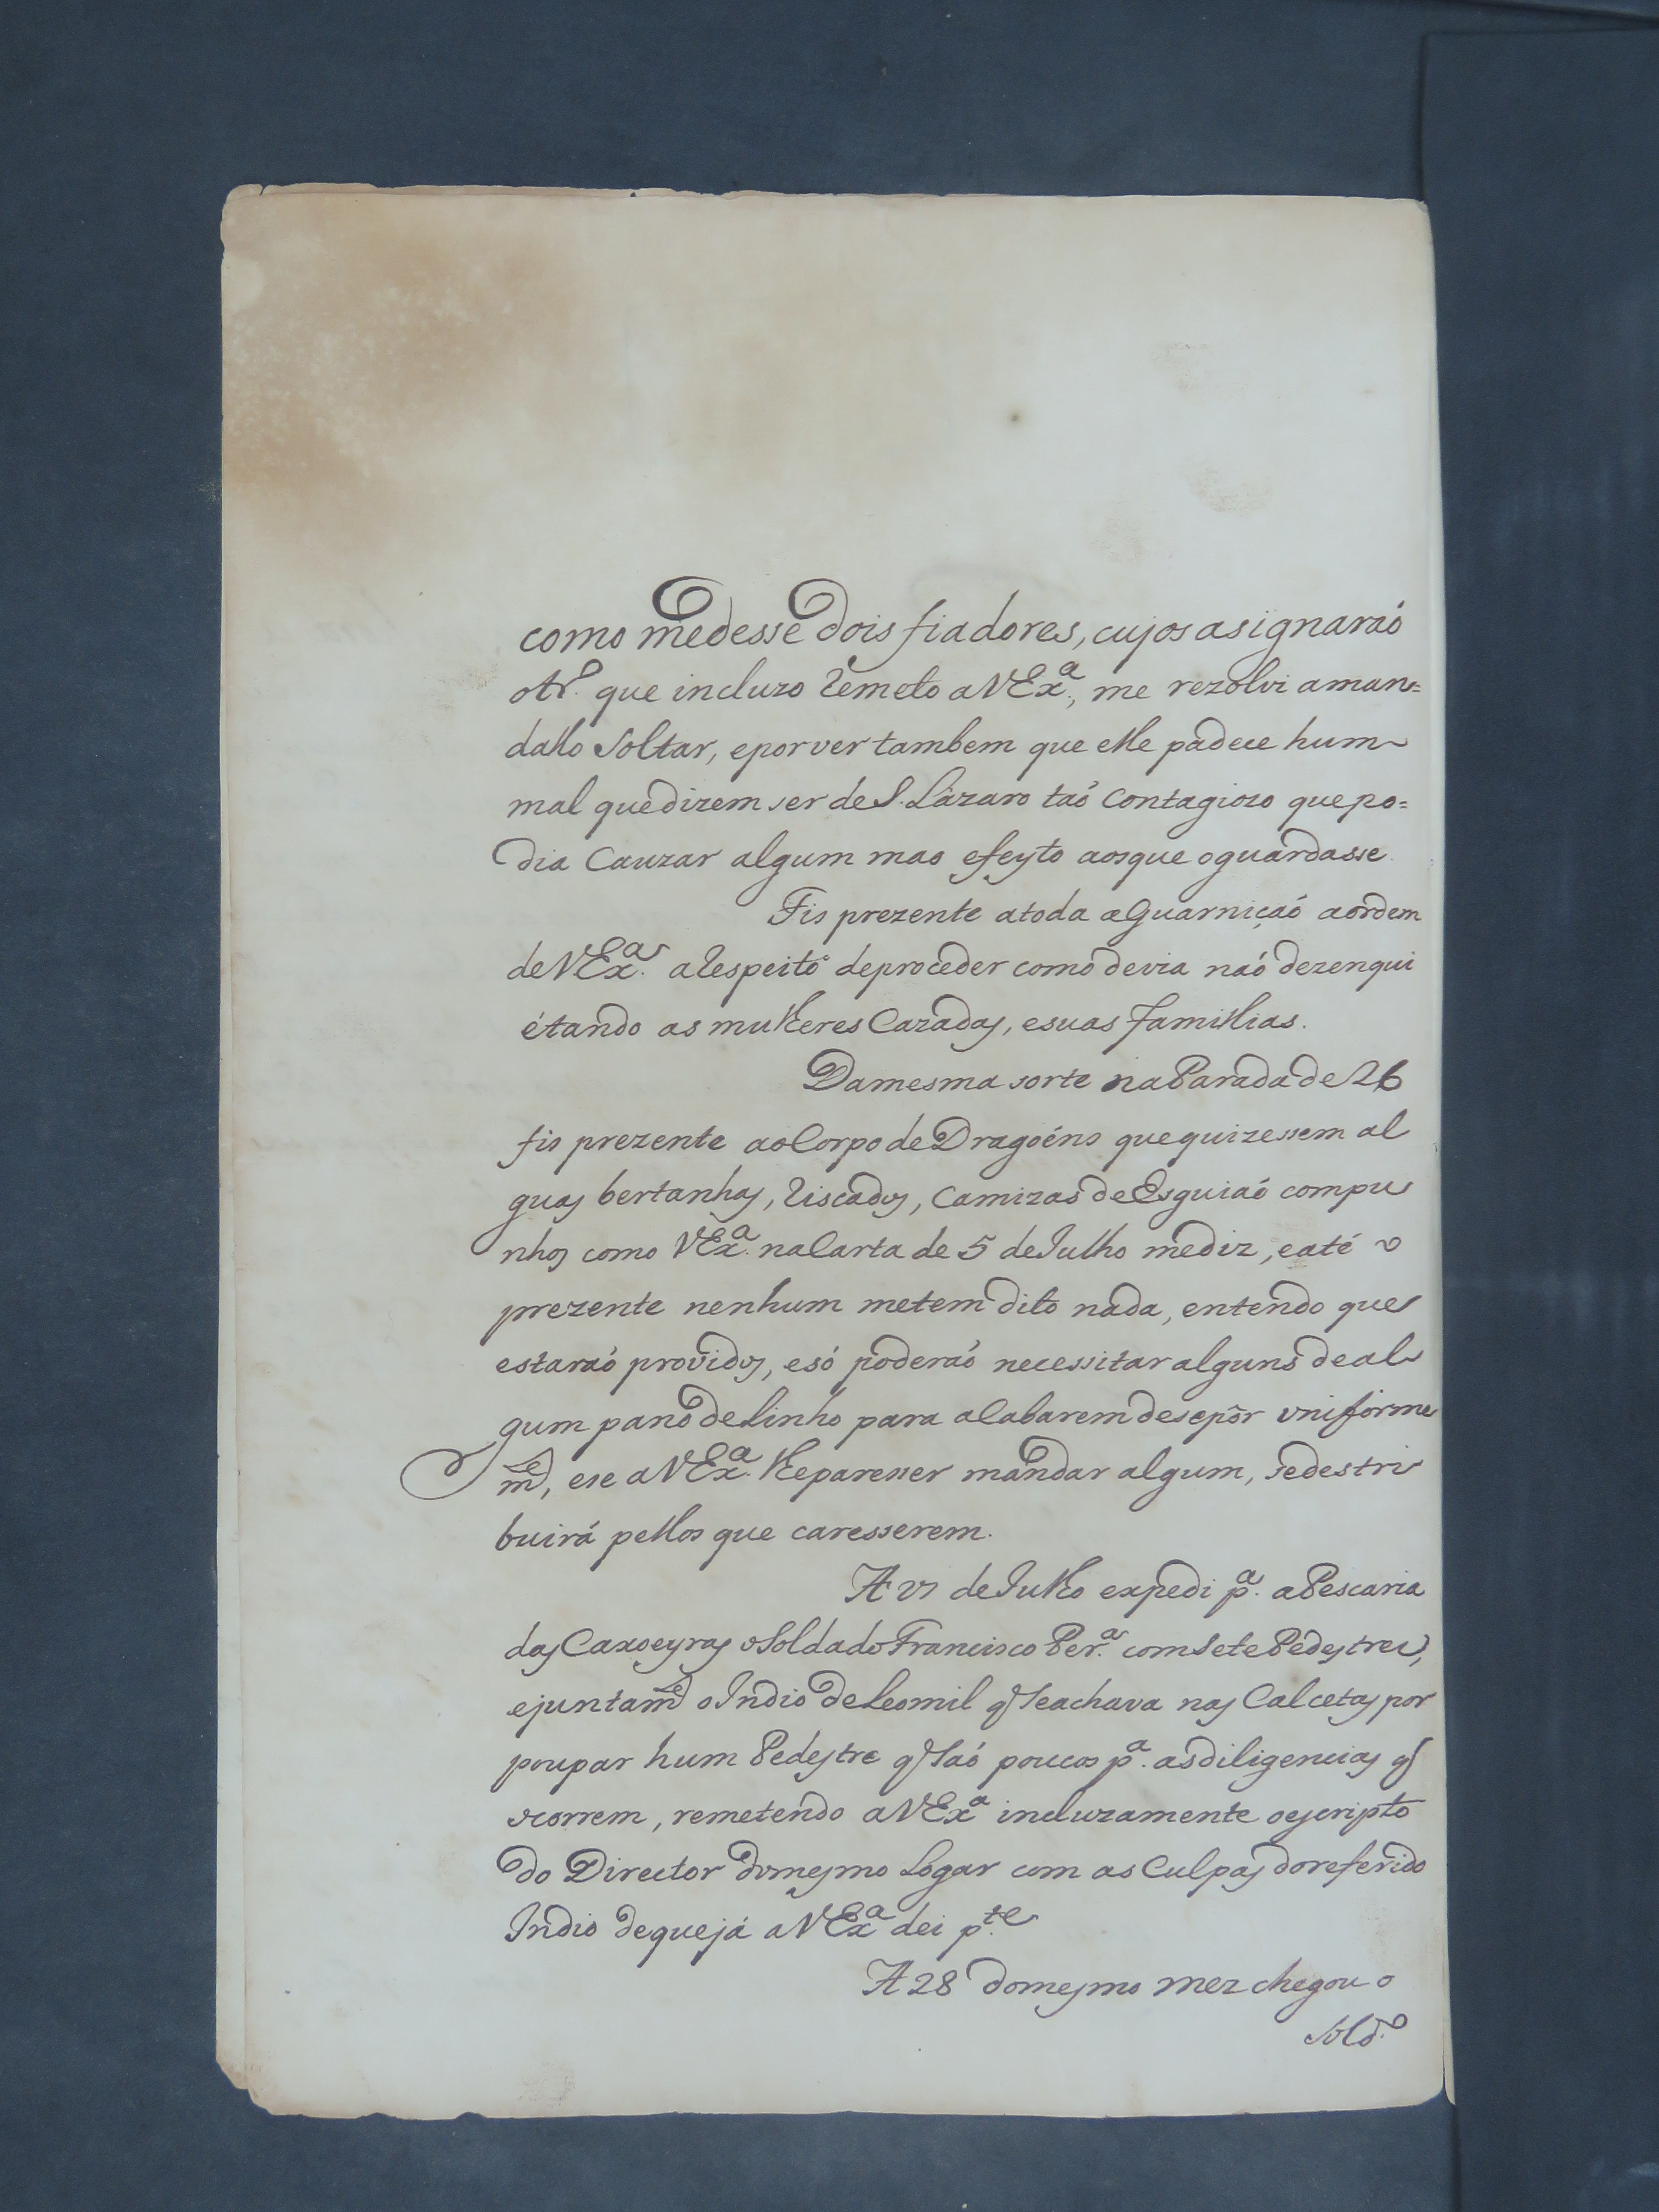 como medesse dois fiadores, cujos asignaraó
otr.º que incluzo remeto a VEx.ª, me rezolvi aman=
dallo Soltar, epor ver tambem que elle padece hum
mal que dizem ser de S. Lázaro taó Contagiozo que po=
dia Cauzar algum mao efeyto aosque oguardasse
Fis prezente atoda aGuarniçaó aordem
de VEx.ª arespeito deproceder como devia naó dezenqui
étando as mulheres Cazadas, esuas famillias.
Damesma sorte na Parada de 26
fis prezente aoCorpo de Dragoéns que quizessem al
guas bertanhas, riscados, Camizas de Esguiaó compu
nhos como VEx.ª na Carta de 5 de Julho mediz, eaté o
prezente nenhum metem dito nada, entendo que
estaraó providos, esó poderaó necessitar alguns deal
gum pano de linho para aCabarem desepór vniforme
m.e, ese aVEx.ª lheparesser mandar algum, sedestri
buirá pellos que caresserem.
A 27 de Julho expedi p.ª aPescaria
das Caxoeyras oSoldado Francisco Per.ª com Sete Pedestres,
ejuntam.e oIndio de Leomil q̃ Seachava nas Calcetas por
poupar hum Pedestre q̃ Saó poucos p.ª as diligencias q̃
ocorrem, remetendo aVEx.ª incluzamente oescripto
do Director domesmo Logar com as Culpas doreferido
Indio dequejá aVEx.ª dei p.te
A 28 domesmo mez chegou o
Sold.º